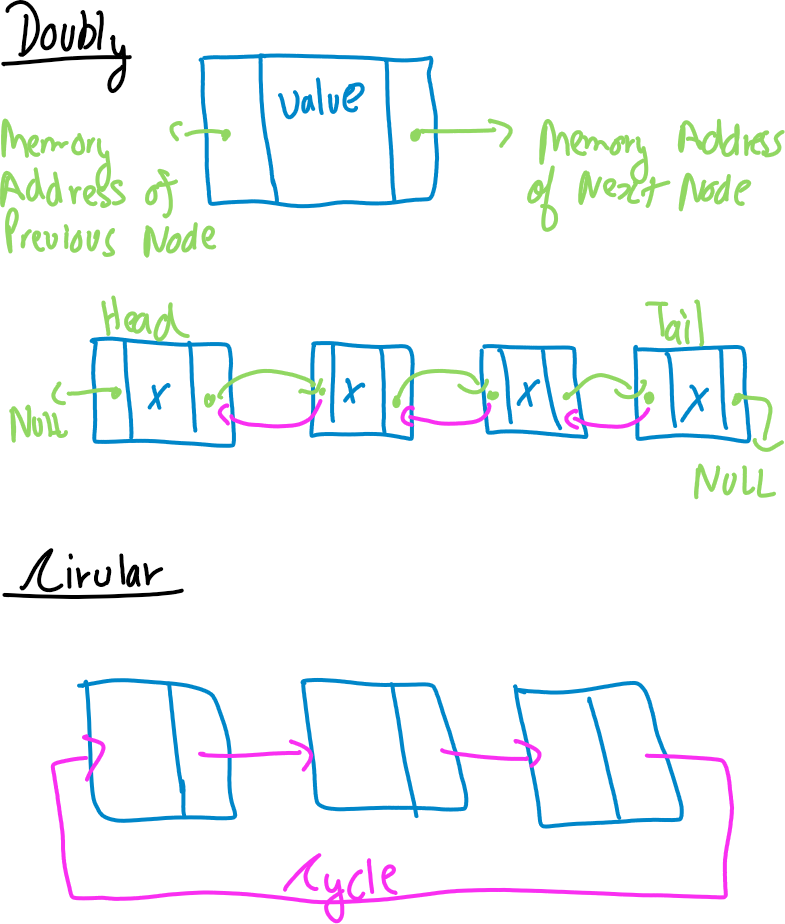 Doubly
value
Memory
Address of
Previous Node
Memory Address
of Next Node
Head
Tail
X
X
X
X
NULL
NULL
Cirular
Cycle